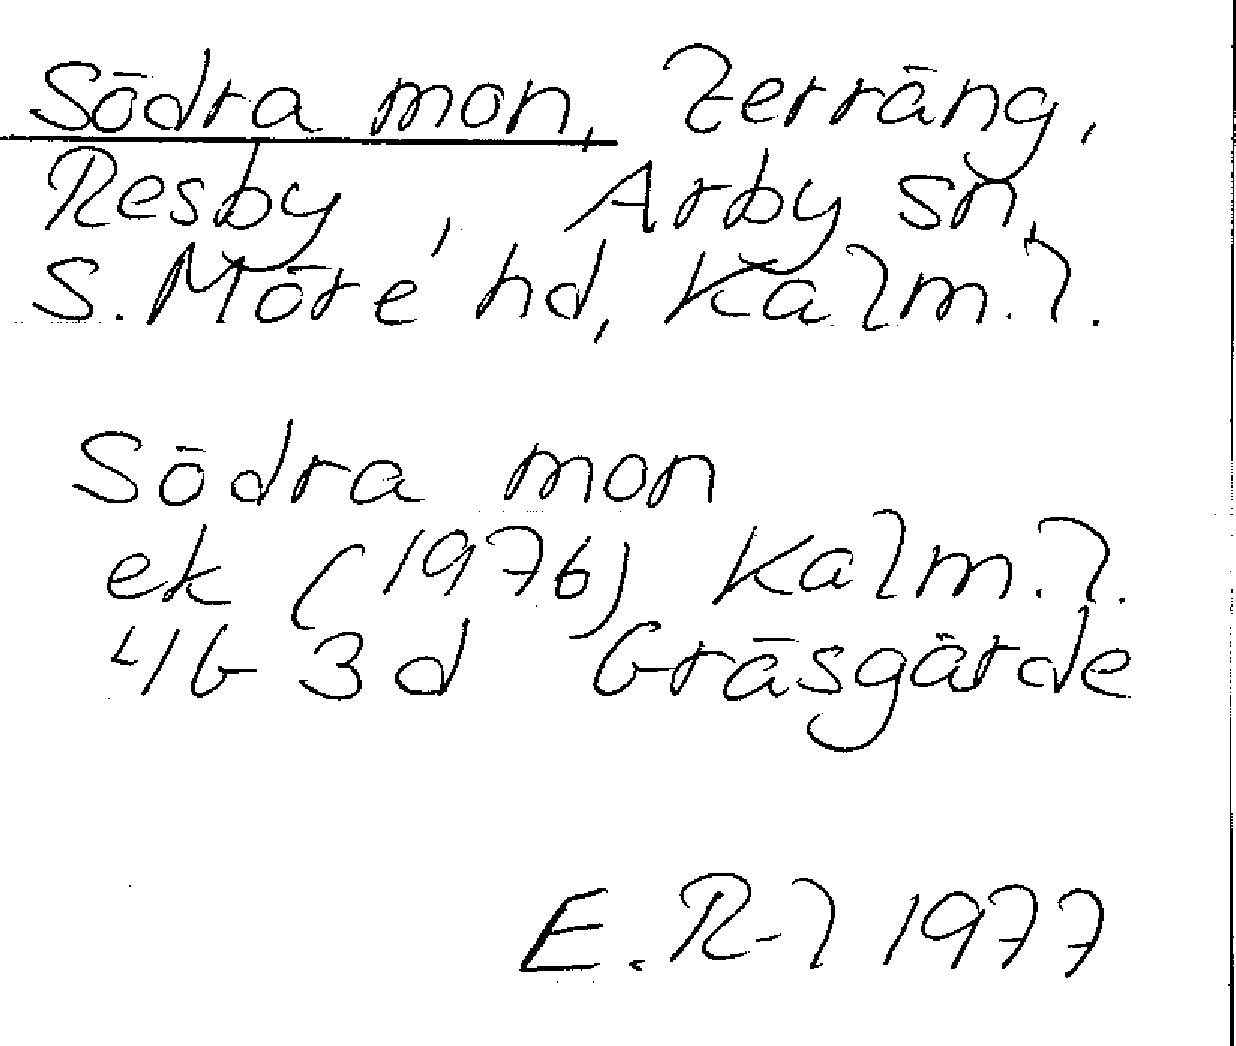 Södra mon, terräng,
Resby, Arby sn,
S. Möre hd, Kalm. l.
Södra mon
ek (1976) Kalm. l.
4G 3d Gräsgärde
E. R-l 1977